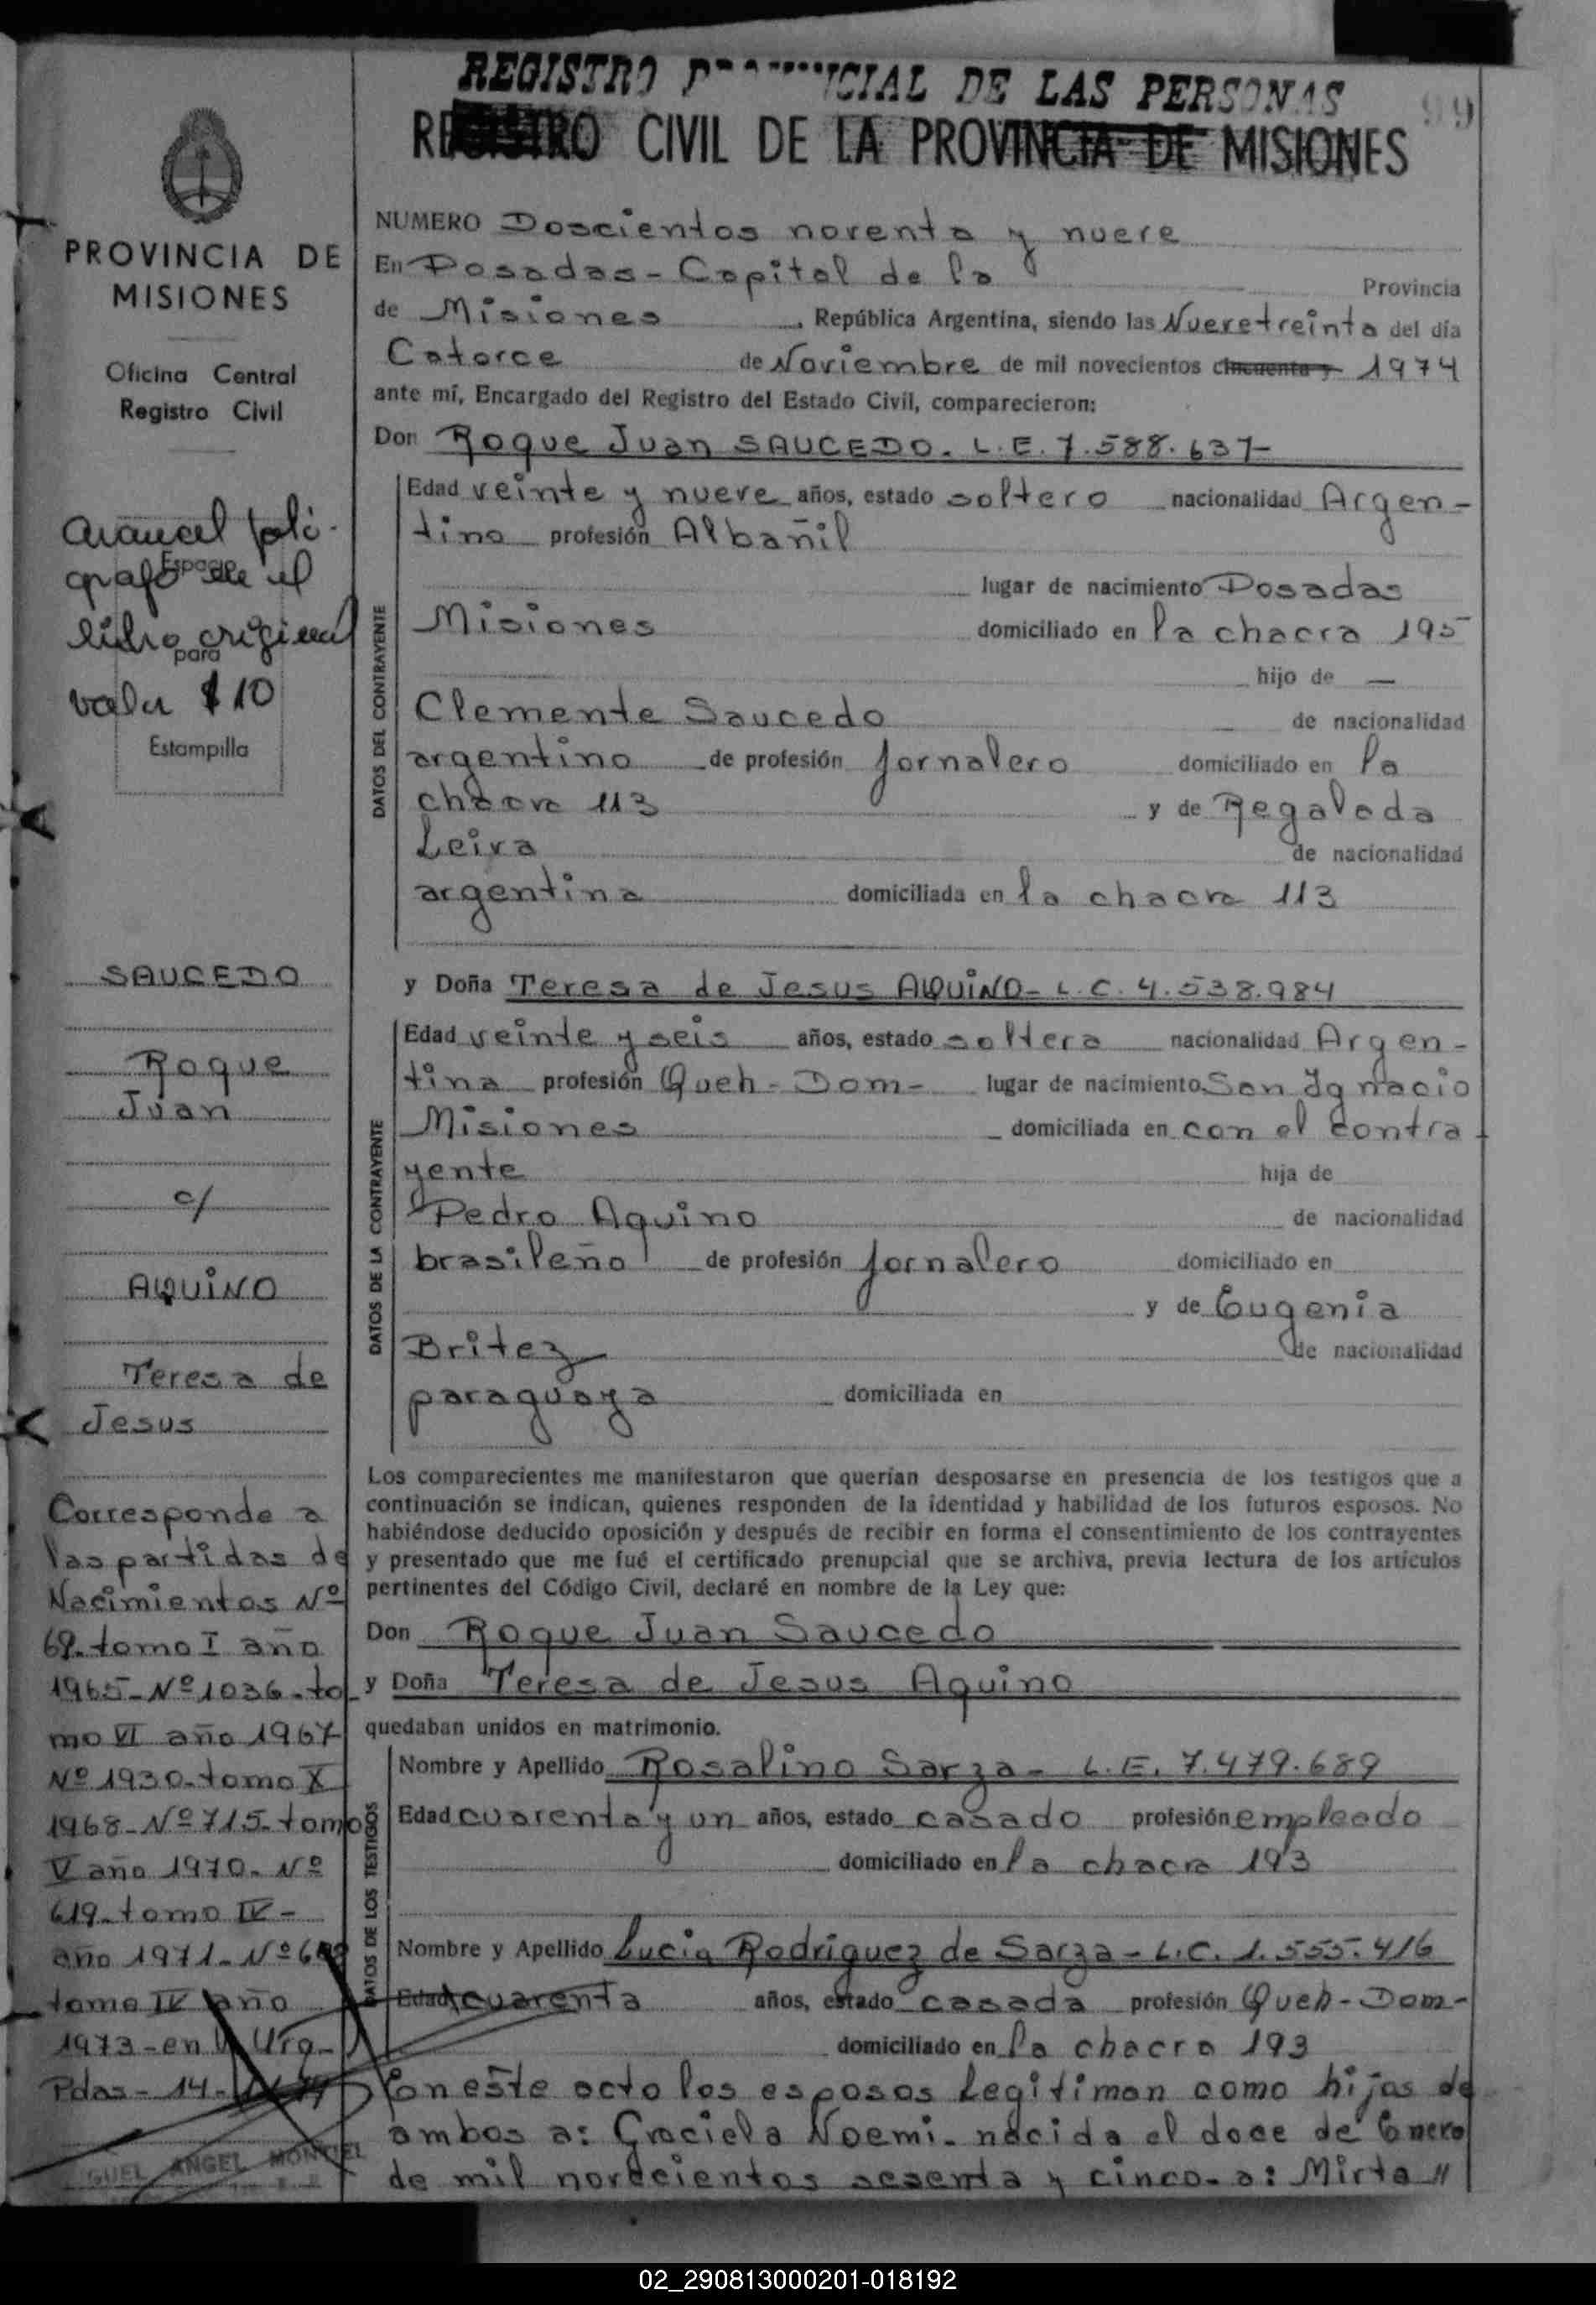 REGISTRO PROVINCIAL DE LAS PERSONAS
REGISTRO CIVIL DE LA PROVINCIA DE MISIONES
99
PROVINCIA DE
MISIONES
Oficina Central
Registro Civil
Arancel foló-
grafo en el
libro original
valor $10
Espacio
para
Estampilla
SAUCEDO
Roque
Juan
c/
AQUINO
Teresa de
Jesus
Corresponde a
las partidas de
Nacimientos Nº
69-tomo I año
1965-Nº1036-to-
mo VI año 1967
Nº 1930-tomo X
1968-Nº715-tomo
V año 1970-Nº
619-tomo IV-
año 1971-Nº
tomo IV año
1973-en Urg-
Pdas-14-
GUEL ANGEL MONTIEL
NUMERO Doscientos noventa y nueve
En Posadas-Capital de la Provincia
de Misiones, República Argentina, siendo las Nueve treinta del día
Catorce de Noviembre de mil novecientos cincuenta y 1974
ante mí, Encargado del Registro del Estado Civil, comparecieron:
Don Roque Juan SAUCEDO. L.E. 7.588.637-
DATOS DEL CONTRAYENTE
Edad veinte y nueve años, estado soltero nacionalidad Argen-
tino profesión Albañil
lugar de nacimiento Posadas
Misiones domiciliado en la chacra 195
hijo de —
Clemente Saucedo de nacionalidad
argentino de profesión jornalero domiciliado en la
chacra 113 y de Regalada
Leiva de nacionalidad
argentina domiciliada en la chacra 113
y Doña Teresa de Jesus AQUINO- L.C. 4.538.984
DATOS DE LA CONTRAYENTE
Edad veinte y seis años, estado soltera nacionalidad Argen-
tina profesión Queh-Dom- lugar de nacimiento San Ignacio
Misiones domiciliada en con el contra
yente hija de
Pedro Aquino de nacionalidad
brasileño de profesión jornalero domiciliado en
y de Eugenia
Britez de nacionalidad
paraguaya domiciliada en
Los comparecientes me manifestaron que querían desposarse en presencia de los testigos que a
continuación se indican, quienes responden de la identidad y habilidad de los futuros esposos. No
habiéndose deducido oposición y después de recibir en forma el consentimiento de los contrayentes
y presentado que me fué el certificado prenupcial que se archiva, previa lectura de los artículos
pertinentes del Código Civil, declaré en nombre de la Ley que:
Don Roque Juan Saucedo
y Doña Teresa de Jesus Aquino
quedaban unidos en matrimonio.
DATOS DE LOS TESTIGOS
Nombre y Apellido Rosalino Sarza- L.E. 7.479.689
Edad cuarenta y un años, estado casado profesión empleado
domiciliado en la chacra 193
Nombre y Apellido Lucia Rodriguez de Sarza- L.C. 1.555.416
Edad cuarenta años, estado casada profesión Queh-Dom-
domiciliado en la chacra 193
En este acto los esposos legitiman como hijas de
ambos a: Graciela Noemi- nacida el doce de Enero
de mil novecientos sesenta y cinco- a: Mirta //
02_290813000201-018192